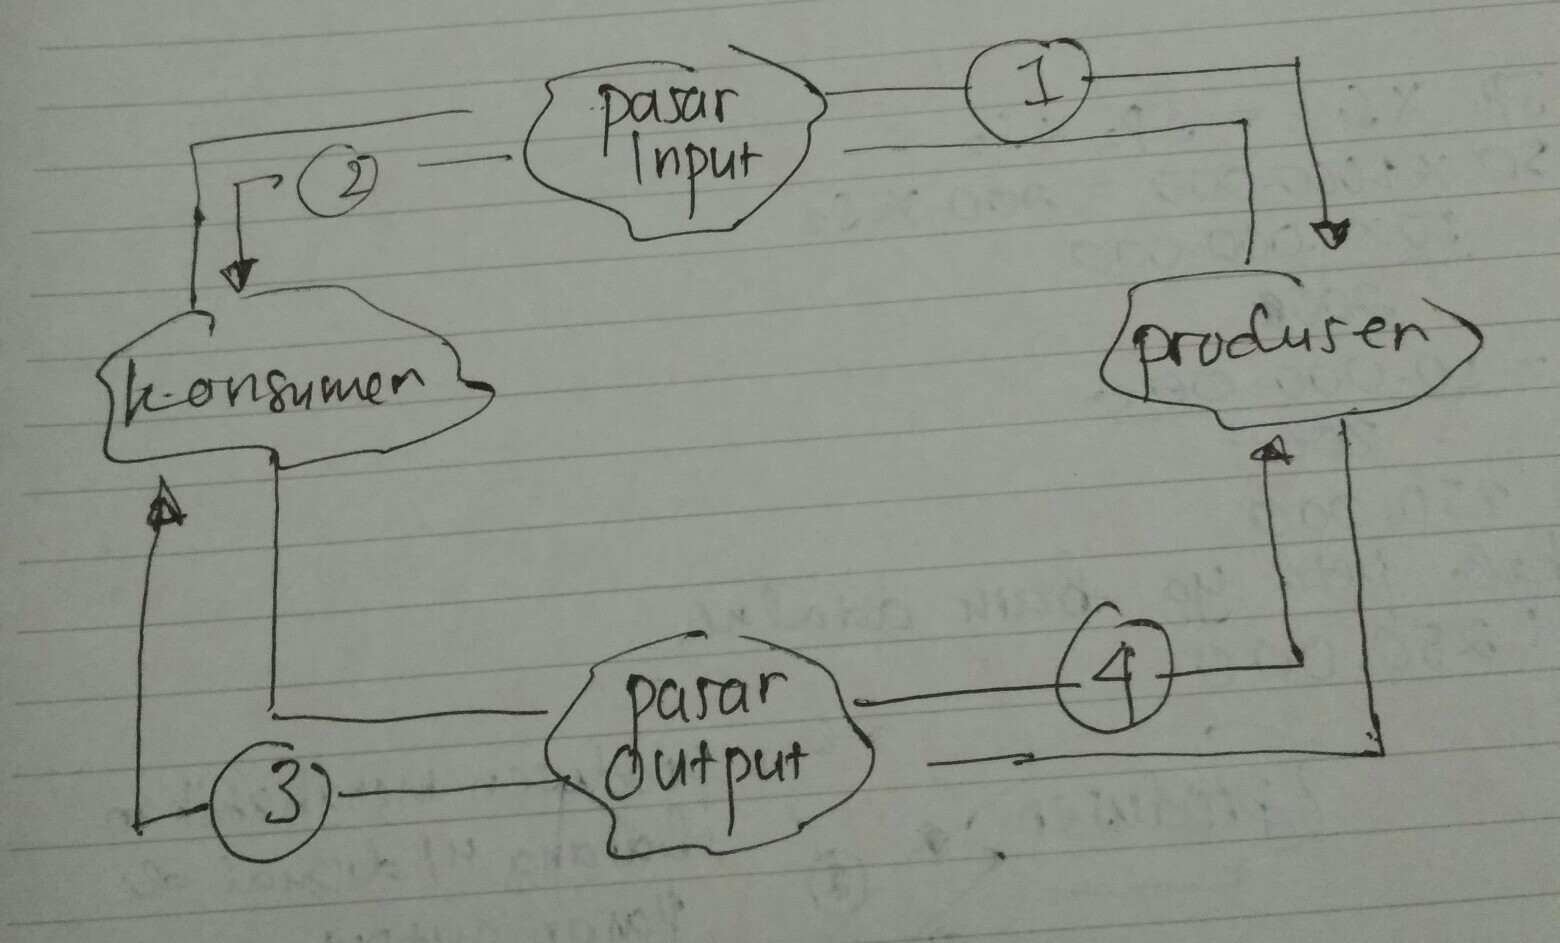 pasar
Input
1
2
konsumen
produsen
pasar
output
3
4